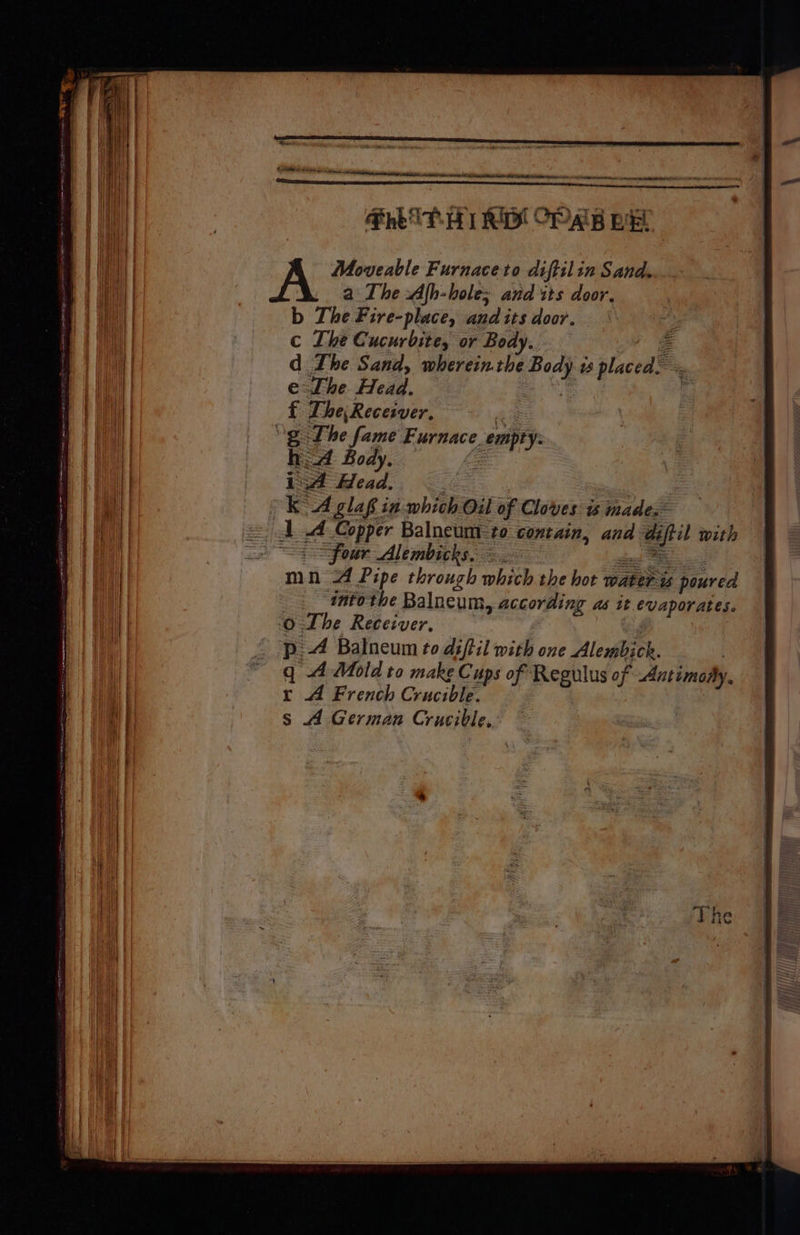 The THIRD TABLE.
A Moveable Furnace to diſtil in Sand.
a The Aſh-hole, and its door.
b The Fire-place, and its door.
c The Cucurbite, or Body.
d The Sand, wherein the Body is placed.
e The Head.
f The Receiver.
g The ſame Furnace empty.
h A Body.
i A Head.
k A glaſs in which Oil of Cloves is made.
l A Copper Balneum to contain, and diſtil with
four Alembicks.
m n A Pipe through which the hot water is poured
into the Balneum, according as it evaporates.
o The Receiver.
p A Balneum to diſtil with one Alembick.
q A Mold to make Cups of Regulus of Antimony.
r A French Crucible.
s A German Crucible.
The